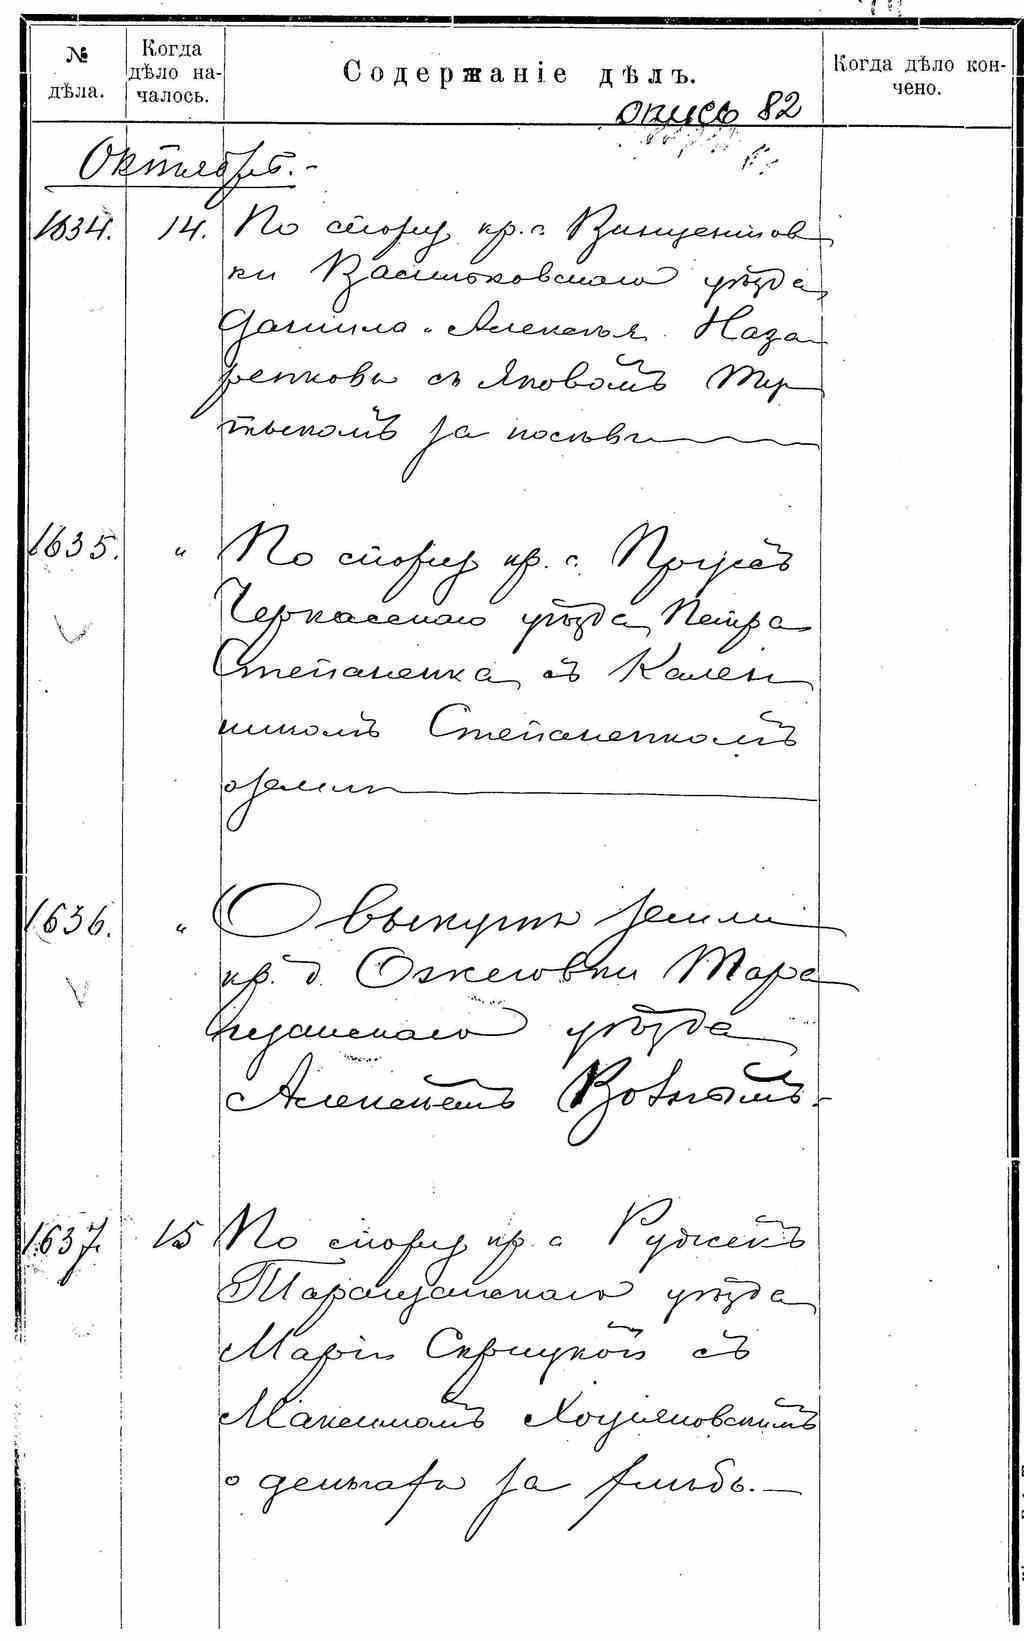 № дѣла.
Когда дѣло началось.
Содержаніе дѣлъ.
Когда дѣло кончено.
опись 82
Октябрь.
1634. 14. По спору кр. с. Винцентов
ки Васильковскаго уѣзда
Данила и Алексѣя Наза
ренковы съ Яковомъ
за посѣвы
1635. " По спору кр. с.
Черкасскаго уѣзда Петра
Степаненка съ Кален
никомъ Степаненкомъ
о земли
1636. " О выкупѣ земли
кр. д. Ожеговки Тара
щанскаго уѣзда
Алексѣемъ
1637. 15 По спору кр. с.
Таращанскаго уѣзда
Маріи Скрицкой съ
Максимомъ
о деньгахъ за хлѣбъ.